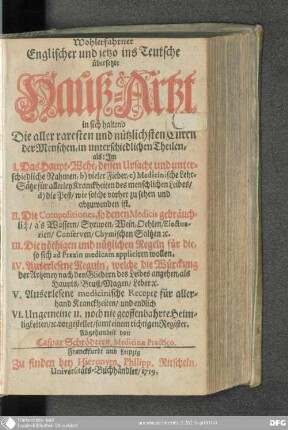 Wohlerfahrner
Englischer und jetzo ins Teutsche
übersetzte
Hauß-Artzt
in sich haltend
Die aller raresten und nützlichsten Curen
der Menschen, in unterschiedlichen Theilen,
als: Im
I. Das Haupt-Wehe, dessen Ursache und unter-
schiedliche Nahmen, b) vieler Fieber, c) Medicinische Lehr-
Sätze für allerley Kranckheiten des menschlichen Leibes,
d) die Pest, wie solche vorher zu sehen und
abzuwenden ist.
II. Die Compositiones, so denen Medicis gebräuch-
lich, als Wassern, Syrupen, Wein, Oehlen, Electua-
rien, Conserven, Chymischen Saltzen ec.
III. Die nöthigen und nützlichen Regeln für die,
so sich ad Praxin medicam appliciren wollen.
IV. Auserlesene Regeln, welche die Würckung
der Artzeney nach den Gliedern des Leibes angehen, als
Haupts, Brust, Magen, Leber ec.
V. Auserlesene medicinische Recepte für aller-
hand Kranckheiten, und endlich
VI. Ungemeine u. noch nie geoffenbahrte Heim-
ligkeiten, ec. vorgestellet, samt einem richtigem Register.
Abgehandelt von
Caspar Schrödern, Medicinæ Practico.
Franckfurth und Leipzig
Zu finden bey Hieronym. Philipp. Ritscheln,
Universitäts-Buchhändler, 1719.